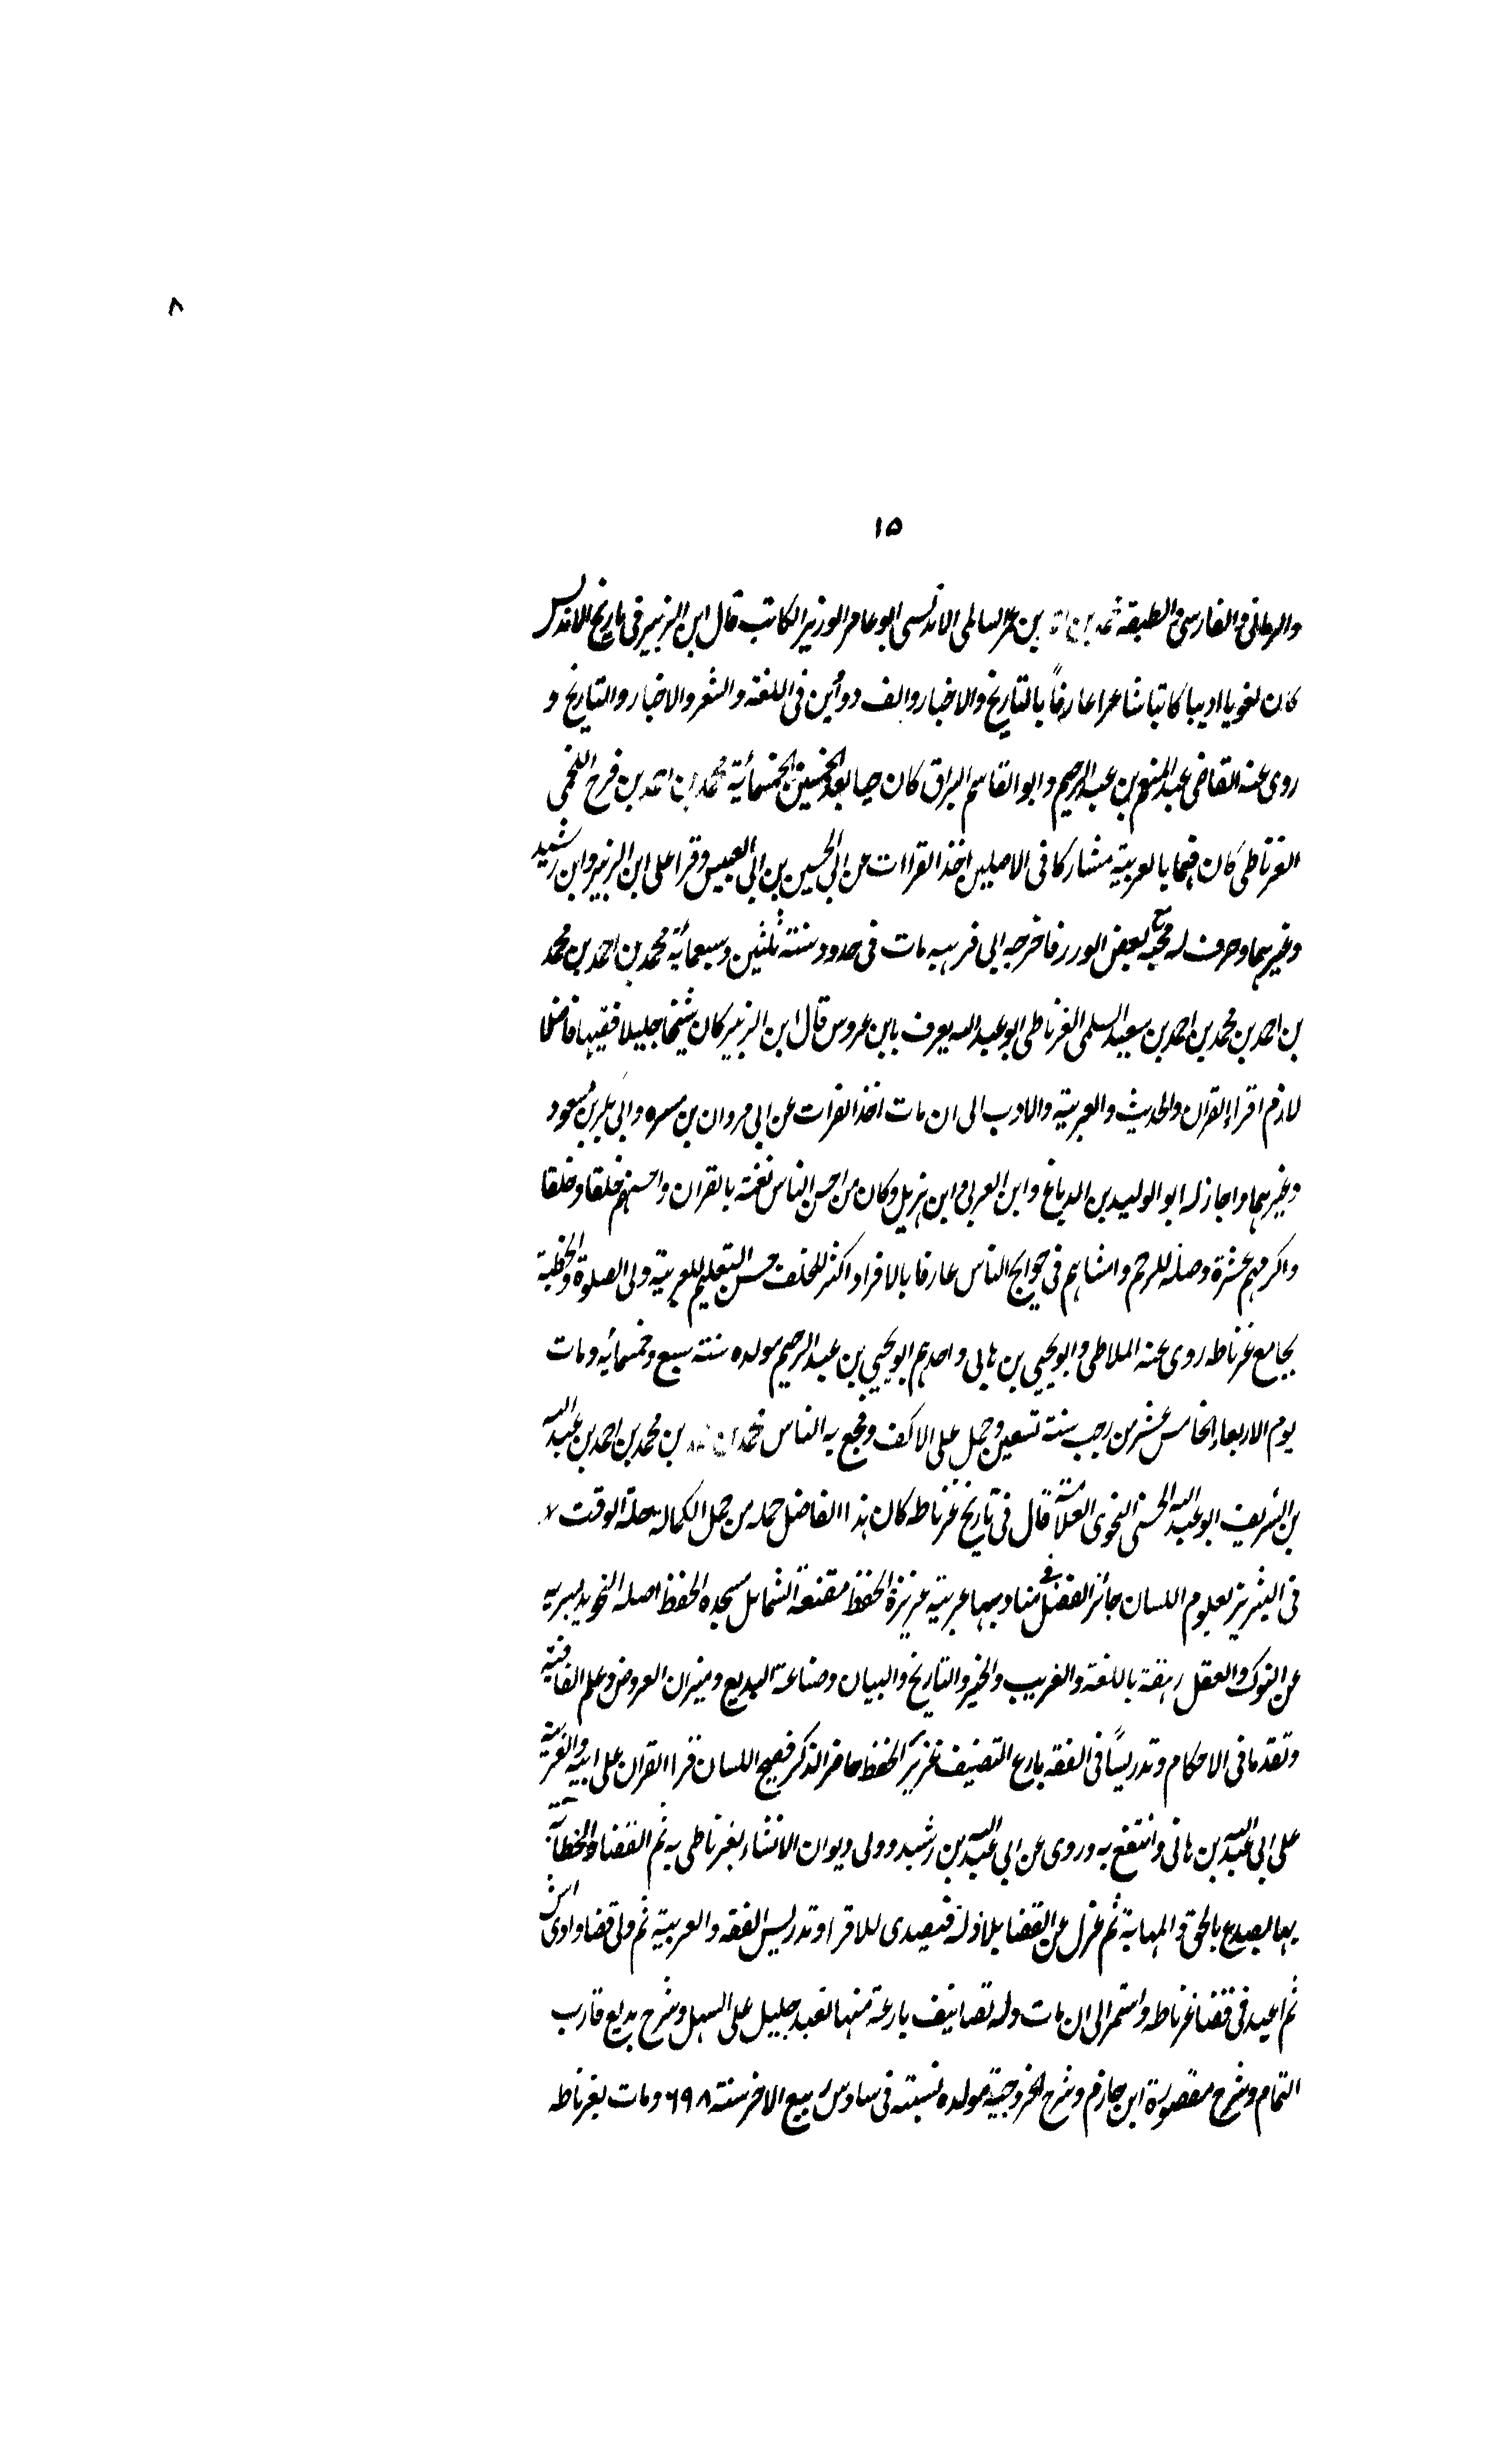 ٨
١٥
والرمانى والفارسى والطبقة محمد بن احمد بن عمر السالمى الاندلسى ابو عامر الوزير الكاتب قال ابن الزبير فى تاريخ الاندلس
كان لغويا اديبا كاتبا شاعرا عارفاً بالتاريخ والاخبار والف دوأين فى اللغة والشعر والاخبار والتاريخ و
روى عنه القاضى عبد المنعم بن عبد الرحيم وابو القاسم البراق كان حيا بعد الخمسين الخمسمائية محمد بن احمد بن فرح اللخمى
الغرناطى كان قيما بالعربية مشاركا فى الاصلين اخذ القراات عن ابى الحسين بن ابى العبيس وقرا على ابن الزبير وابن رشيد
وغيرهما وصرف له محبة بعض الوزر فاخرجه الى مات فى حدود سنة ثلثين وسبعمائة محمد بن احمد بن محمد
بن احمد بن محمد بن احمد بن سعيد السلمى الغرناطى ابو عبد الله يعرف بابن عروس قال ابن الزبير كان شيخا جليلا فقيها فاضلا
لازم اقراء القران والحديث والعربية والادب الى ان مات اخذ القرات عن ابى مروان بن مسره وابى بكر بن مسعود
وغيرهما واجاز له ابو الوليد بن الدباغ وابن العربى وابن هزيل وكان من احسن الناس نغمة بالقران واحسنهم خلقا وخلقا
واكرمهم عشرة وصلة للرحم وامشاهم فى حوايج الناس عارفا بالاقراء اكثر للخلف حسن التعليم للعربية ولى الصلوة والخطبة
بجامع غرناطه روى عنه الملاطى وابو يحيى بن هانى واحدهم ابو يحيى بن عبد الرحيم مولده سنة سبع وخمسمائه ومات
يوم الاربعاء الخامس عشر من رجب سنة تسعين وحمل على الاكف وفجع به الناس محمد بن احمد بن محمد بن احمد بن عبد الله
بن الشريف ابو عبد الله الحسنى النحوى العلامة قال فى تاريخ غرناطه كان هذا الفاضل جملة من جمل الكمال رحلة الوقت
لعلوم اللسان حائز الفضل فى عربية غزيرة الحفظ مقنعة الشمائل الحفظ اصله
عن النوك والعقل باللغة والغريب والخبر والتاريخ والبيان وصناعة البديع وميزان العروض وعلم القافية
وتقدما فى الاحكام وتدريسًا فى الفقه بارع التصنيف غزير الحفظ حاضر الذكر فصيح اللسان قرا القران على ابيه والعربية
على ابى عبد الله بن هانى وانتفع به وروى عن ابى عبد الله بن رشيد وولى ديوان الانشاء بغرناطى به ثم القضا والخطابة
بها يصدع بالحق والمهابة ثم عزل عن القضا بلا ذلة فتصدى للاقرا وتدريس الفقه والعربية ثم ولى قضا وادى اش
ثم اعيد فى قضا غرناطه واستمر الى ان مات وله تصانيف بارعة منها تقييد جليل على التسهيل وشرح بديع قارب
التمام وشرح مقصورة ابن حازم وشرح الخزرجية مولده بسبتة فى سادس ربيع الاخر سنة ٦٩٨ ومات بغرناطه